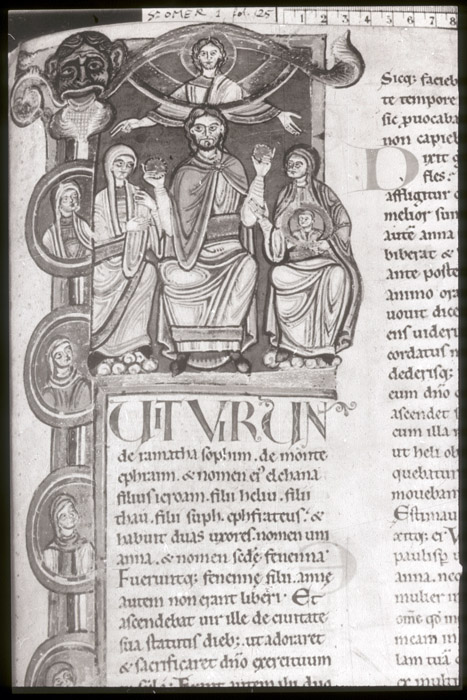 St OMER 1 fol. 125
1 2 3 4 5 6 7 8
UIT VIR UN
de ramatha sophim. de monte
ephraim. & nomen ei' elchana
filius ieroam. filii heliu. filii
thau. filii suph. ephrateus. &
habuit duas uxores. nomen uni
anna. & nomen sede fenenna
Fueruntq; fenenne filii. anne
autem non erant liberi. Et
ascendebat uir ille de ciuitate
sua statutis dieb; ut adoraret
& sacrificaret dno exercituum
Sicq; facieb
te tempore
sic puocaba
non capieb
Dixit g
fles
affligitur c
melior sum
aute anna
biberat &
ante poste
animo ora
uouit dice
ens uideri
cordatus n
dederisq;
eum dno o
ascendet s
cum illa m
ut heli ob
quebatur
mouebant
Estimau
paulisp u
anna. neq
mulier in
meam in
lam tuā